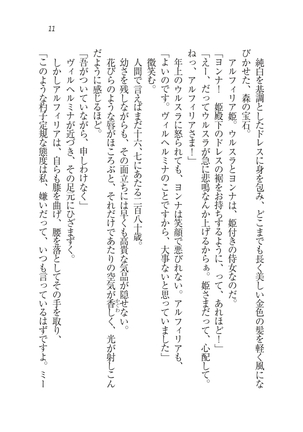 11
純白を基調としたドレスに身を包み、どこまでも長く美しい金色の髪を軽く風にな
びかせた、森の宝石。
アルフィリア姫。ウルスラとヨンナは、姫付きの侍女なのだ。
「ヨンナ!　姫殿下のドレスの裾をお持ちするように、って、あれほど!」
「えー、だってウルスラが急に悲鳴なんか上げるからぁ。姫さまだって、心配して。
ねっ、アルフィリアさま!」
年上のウルスラに怒られても、ヨンナは笑顔で悪びれない。アルフィリアも、
「よいのです。ヴィルヘルミナに何もなかったですから、大事ないと思っていました」
微笑む。
人間で言えばまだ十六、七にあたる二百八十歳。
幼さを残しながらも、その面立ちには早くも高貴な気品が隠せない。
花びらのような唇がほころぶと、それだけであたりの空気が香しく、光が射しこん
だように感じるほど。
「吾がついていながら、申しわけなく」
ヴィルヘルミナが近づき、その足元にひざまずく。
しかしアルフィリアは、自らも膝を曲げ、腰を落としてその手を取り、
「このような杓子定規な態度は私、嫌いだって、いつも言っているはずですよ。ミー